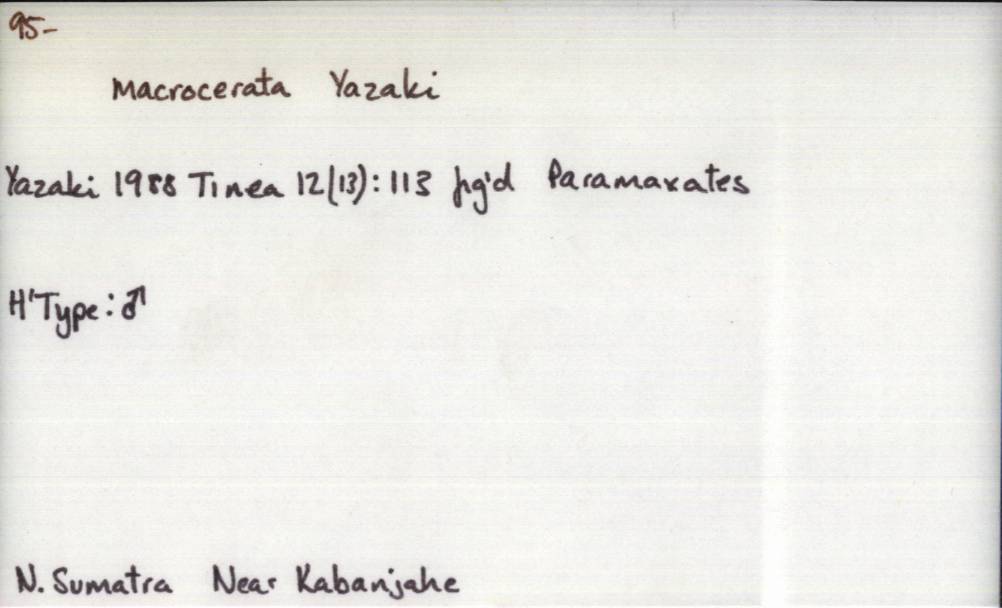 95-
macrocerata Yazaki
Yazaki 1988 Tinea 12(13): 113 fig'd Paramaxates
H'Type: ♂
N. Sumatra Near Kabanjahe